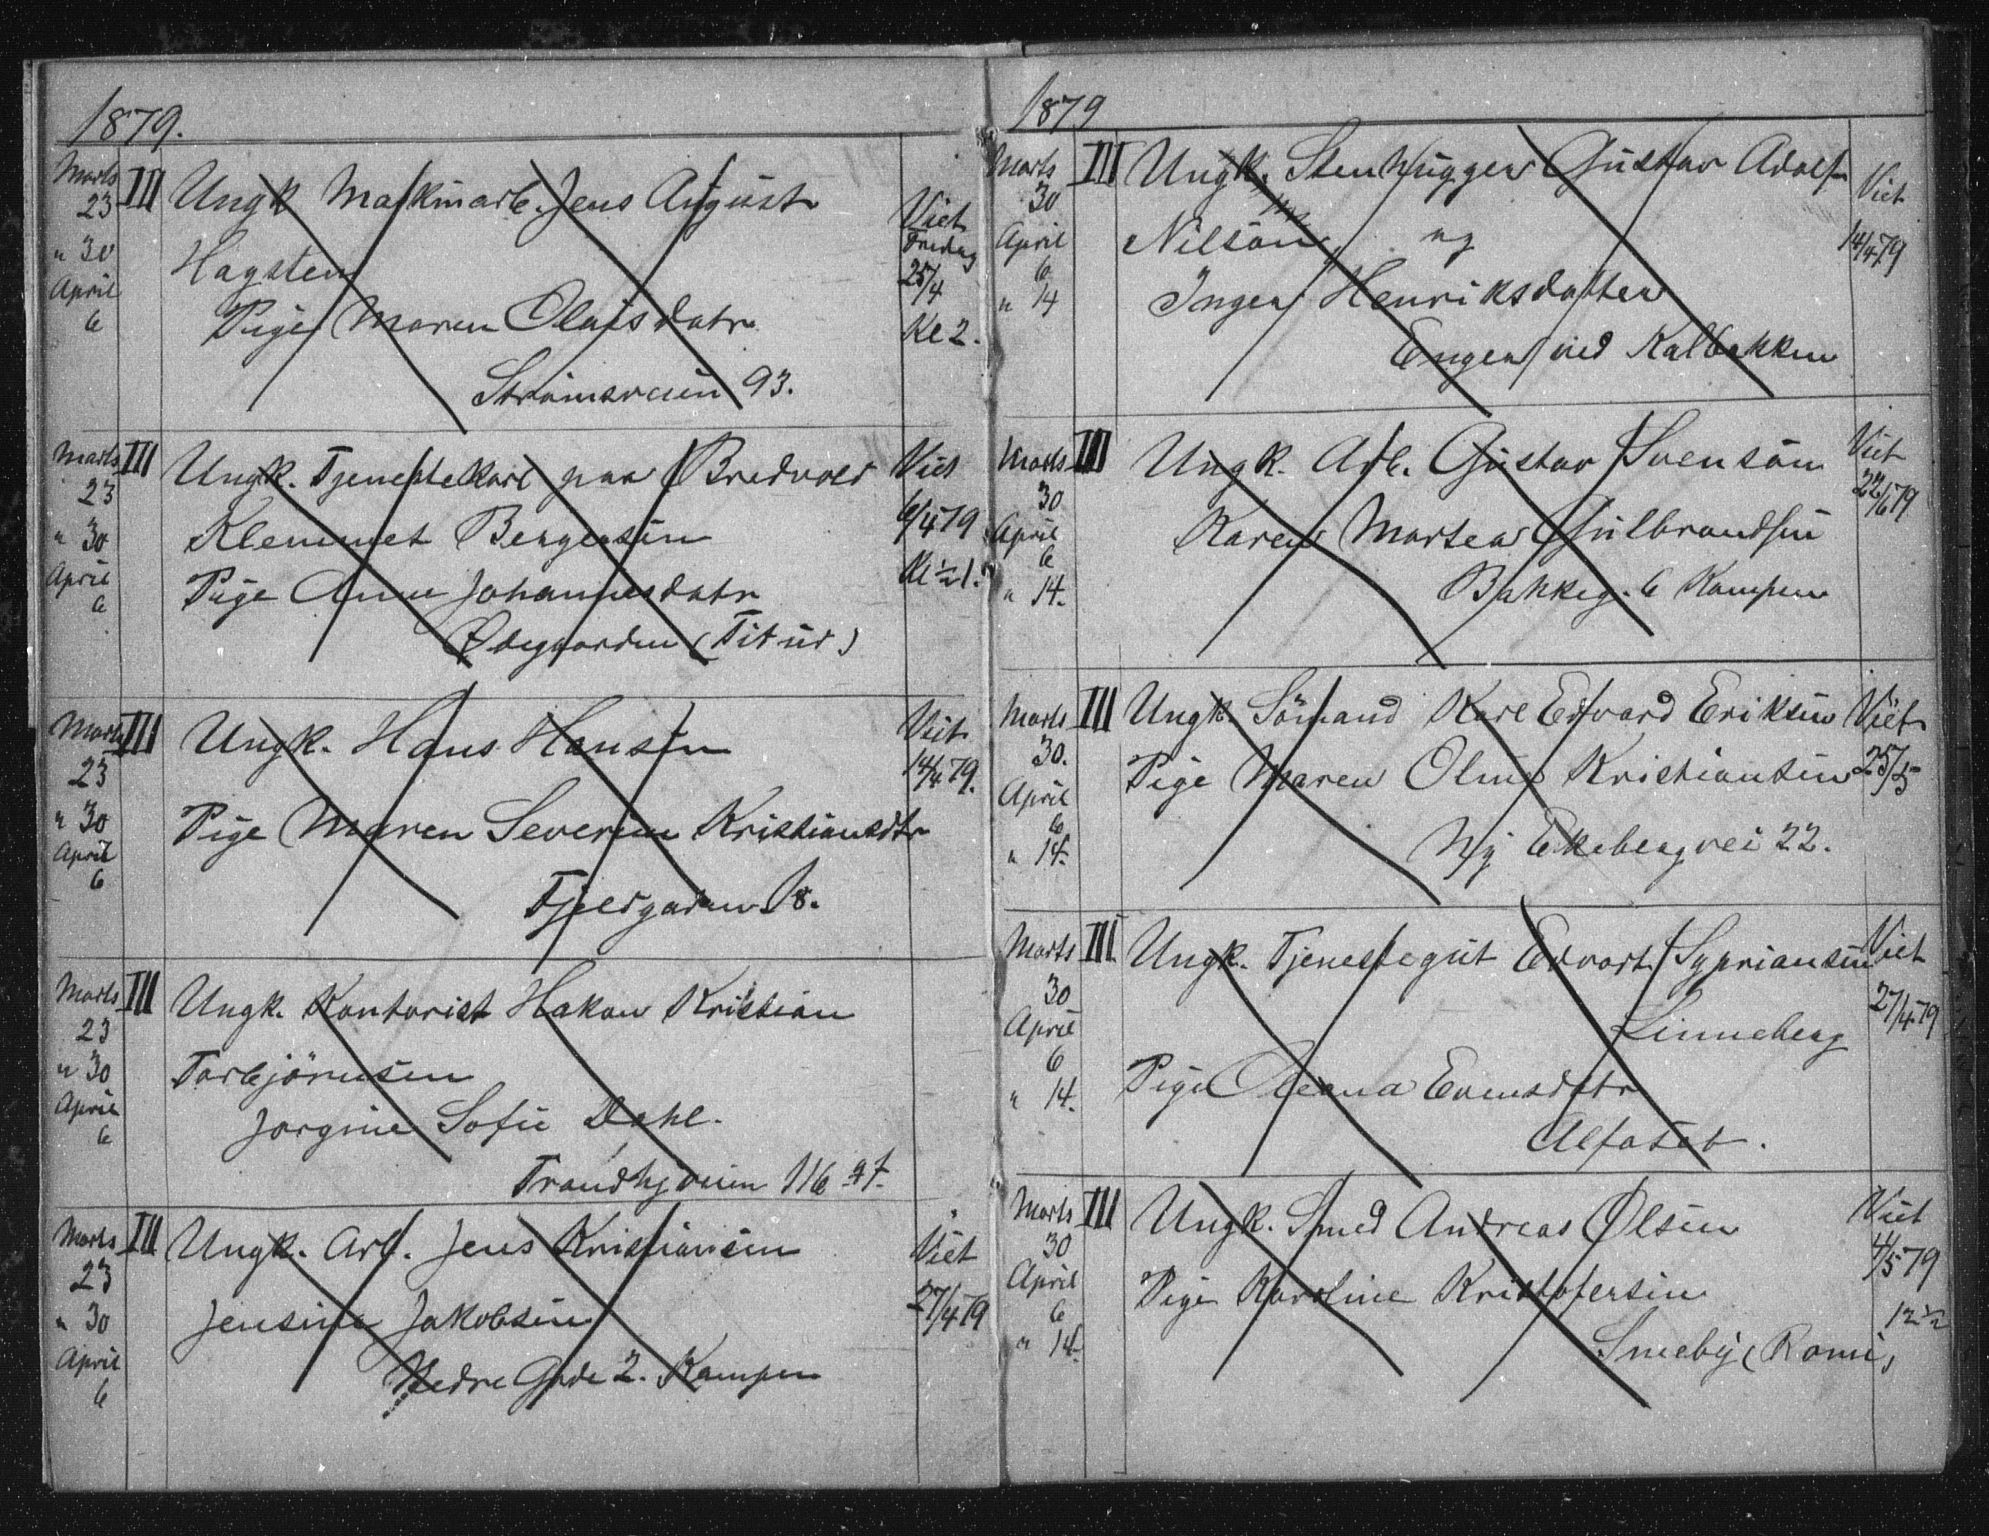 1879.
Marts 23 " 30 April 6
III
Ungk Maskinarb. Jens August
Hagsten
Pige Maren Olausdatr
Strömsveien 93.
Viet Fredag 25/4 Kl 2.
Marts 23 " 30 April 6
III
Ungk. Tjenestekarl paa Bredvold
Klemmet Bengtsön
Pige Anne Johannesdatr
Ødegaarden (Titus)
Viet 6/4 79 Kl ½1.
Marts 23 " 30 April 6
III
Ungk. Hans Hansen
Pige Maren Severine Kristiansdtr
Fjeldgaden 18.
Viet 14/4 79.
Marts 23 " 30 April 6
III
Ungk. Kontorist Hakon Kristian
Torbjörnsen
Jorgine Sofie Dahl.
Trondhjveien 116
Marts 23 " 30 April 6
III
Ungk. Arb. Jens Kristiansen
Jensine Jakobsen
Nedre Gade 2. Kampen
Viet 27/4 79
1879
Marts 30 April 6 " 14
III
Ungk. Stenhugger Gustav Adolf
Nilsön og
Inger Henriksdatter
Engen ved Kalbakken
Viet 14/4 79
Marts 30 April 6 " 14.
III
Ungk. Arb. Gustav Svensön
Karen Martea Gulbrandsen
Bakkeg. 6 Kampen
Viet 22/6 79
Marts 30. April 6 " 14.
III
Ungk. Sömand Karl Edvard Eriksen
Pige Maren Oline Kristiansen
Ny Ekebergvei 22.
Viet 25/5
Marts 30 April 6 " 14.
III
Ungk. Tjenestegut Edvart Syprians​en
Linneberg
Pige Oleana Evensdatr
Alfaset.
Viet 27/4 79
Marts 30 April 6 " 14.
III
Ungk. Smed Andreas Olsen
Pige Karoline Kristofersen
Smeby (Romi)
Viet 4/5 79 12½